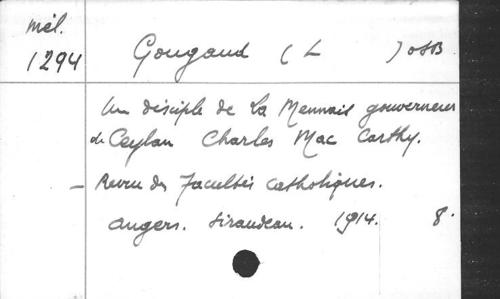 mél.
1294
Gougaud (L ) OSB
Un disciple de La Mennais gouverneur
de Ceylan Charles Mac Carthy.
– Revue des Facultés catholiques.
Angers. Siraudeau. 1914. 8.